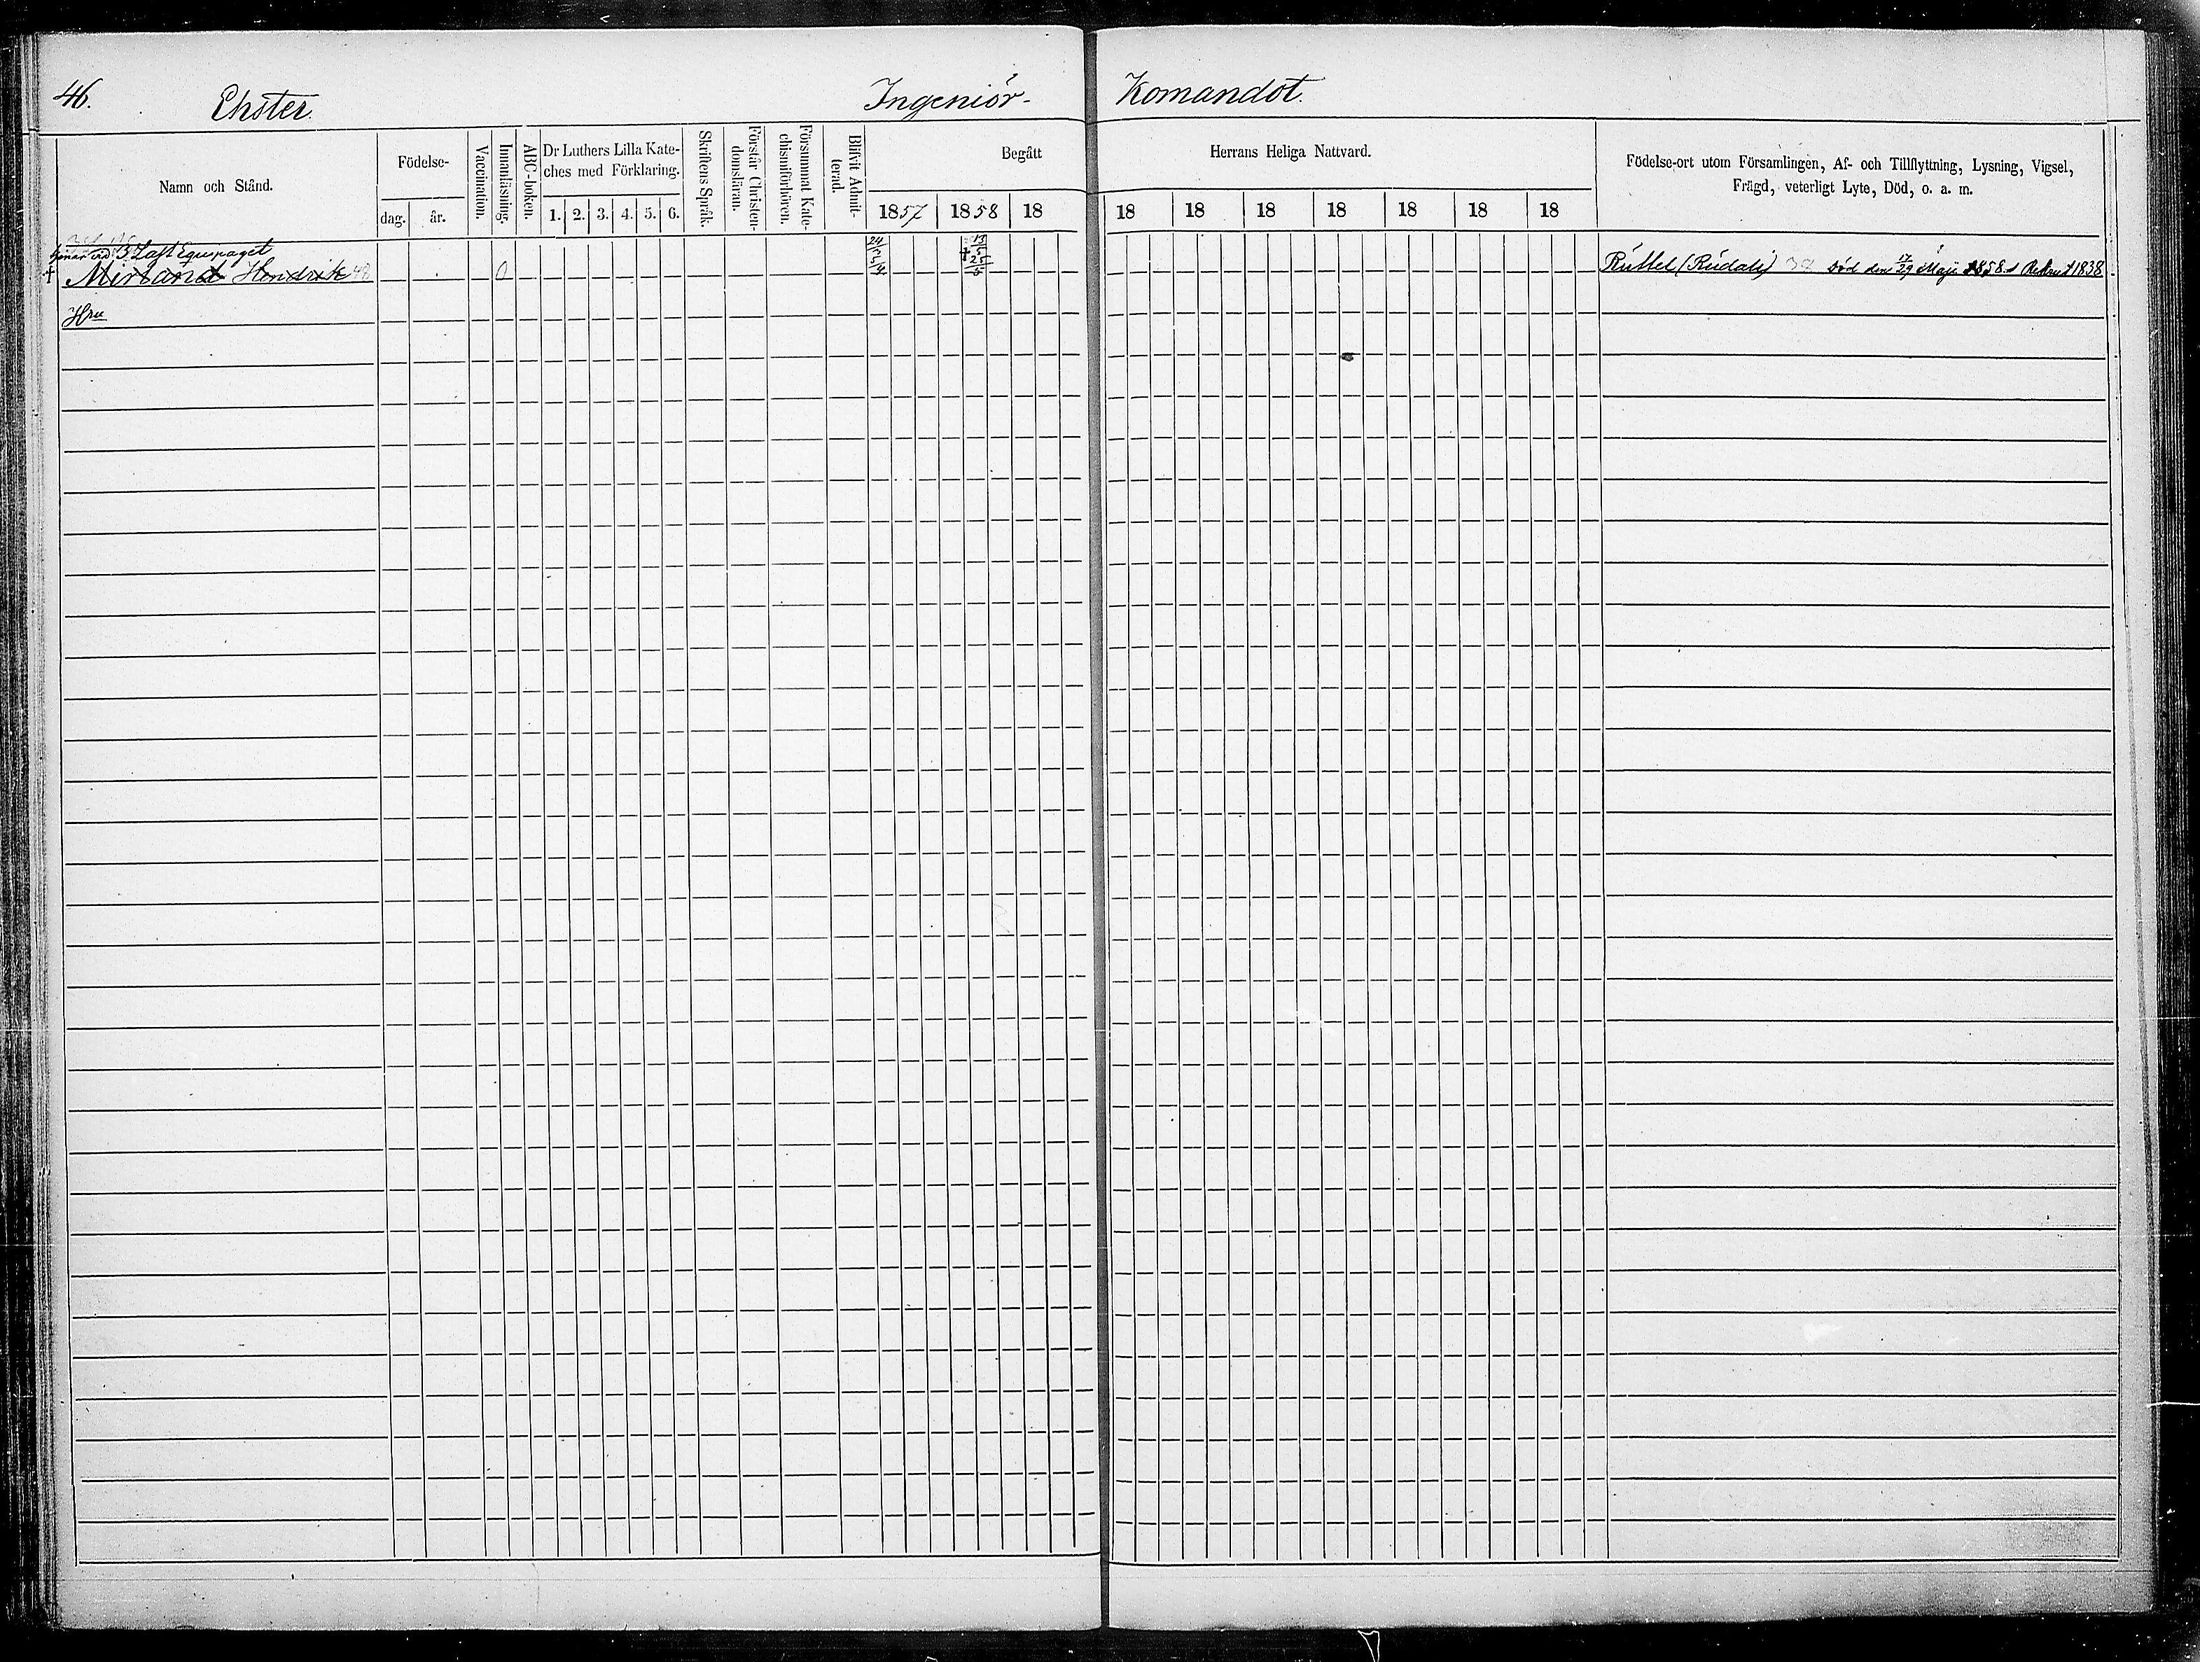 46.
Ehster.
Ingeniör-
Komandot.
Namn och Stånd.
Födelse-
dag.
år.
Vaccination.
Innanläsning.
ABC-boken.
Dr Luthers Lilla Kate-
ches med Förklaring.
1. 2. 3. 4. 5. 6.
Skriftens Språk.
Förstår Christen-
domsläran.
Försummat Kate-
chismiförhören.
Blifvit Admit-
terad.
Begått
Herrans Heliga Nattvard.
1857 1858 18
18 18 18 18 18 18 18
Födelse-ort utom Församlingen, Af- och Tillflyttning, Lysning, Vigsel,
Frägd, veterligt Lyte, Död, o. a. m.
tjenar vid 3 Last Equipaget
† Mirland Hendrik 48
24/3 5/4
† 13/5 25/5
Ruttel (Rudali) 38 död den 17/29 Maji 1858. Rekrut 1838
Hru